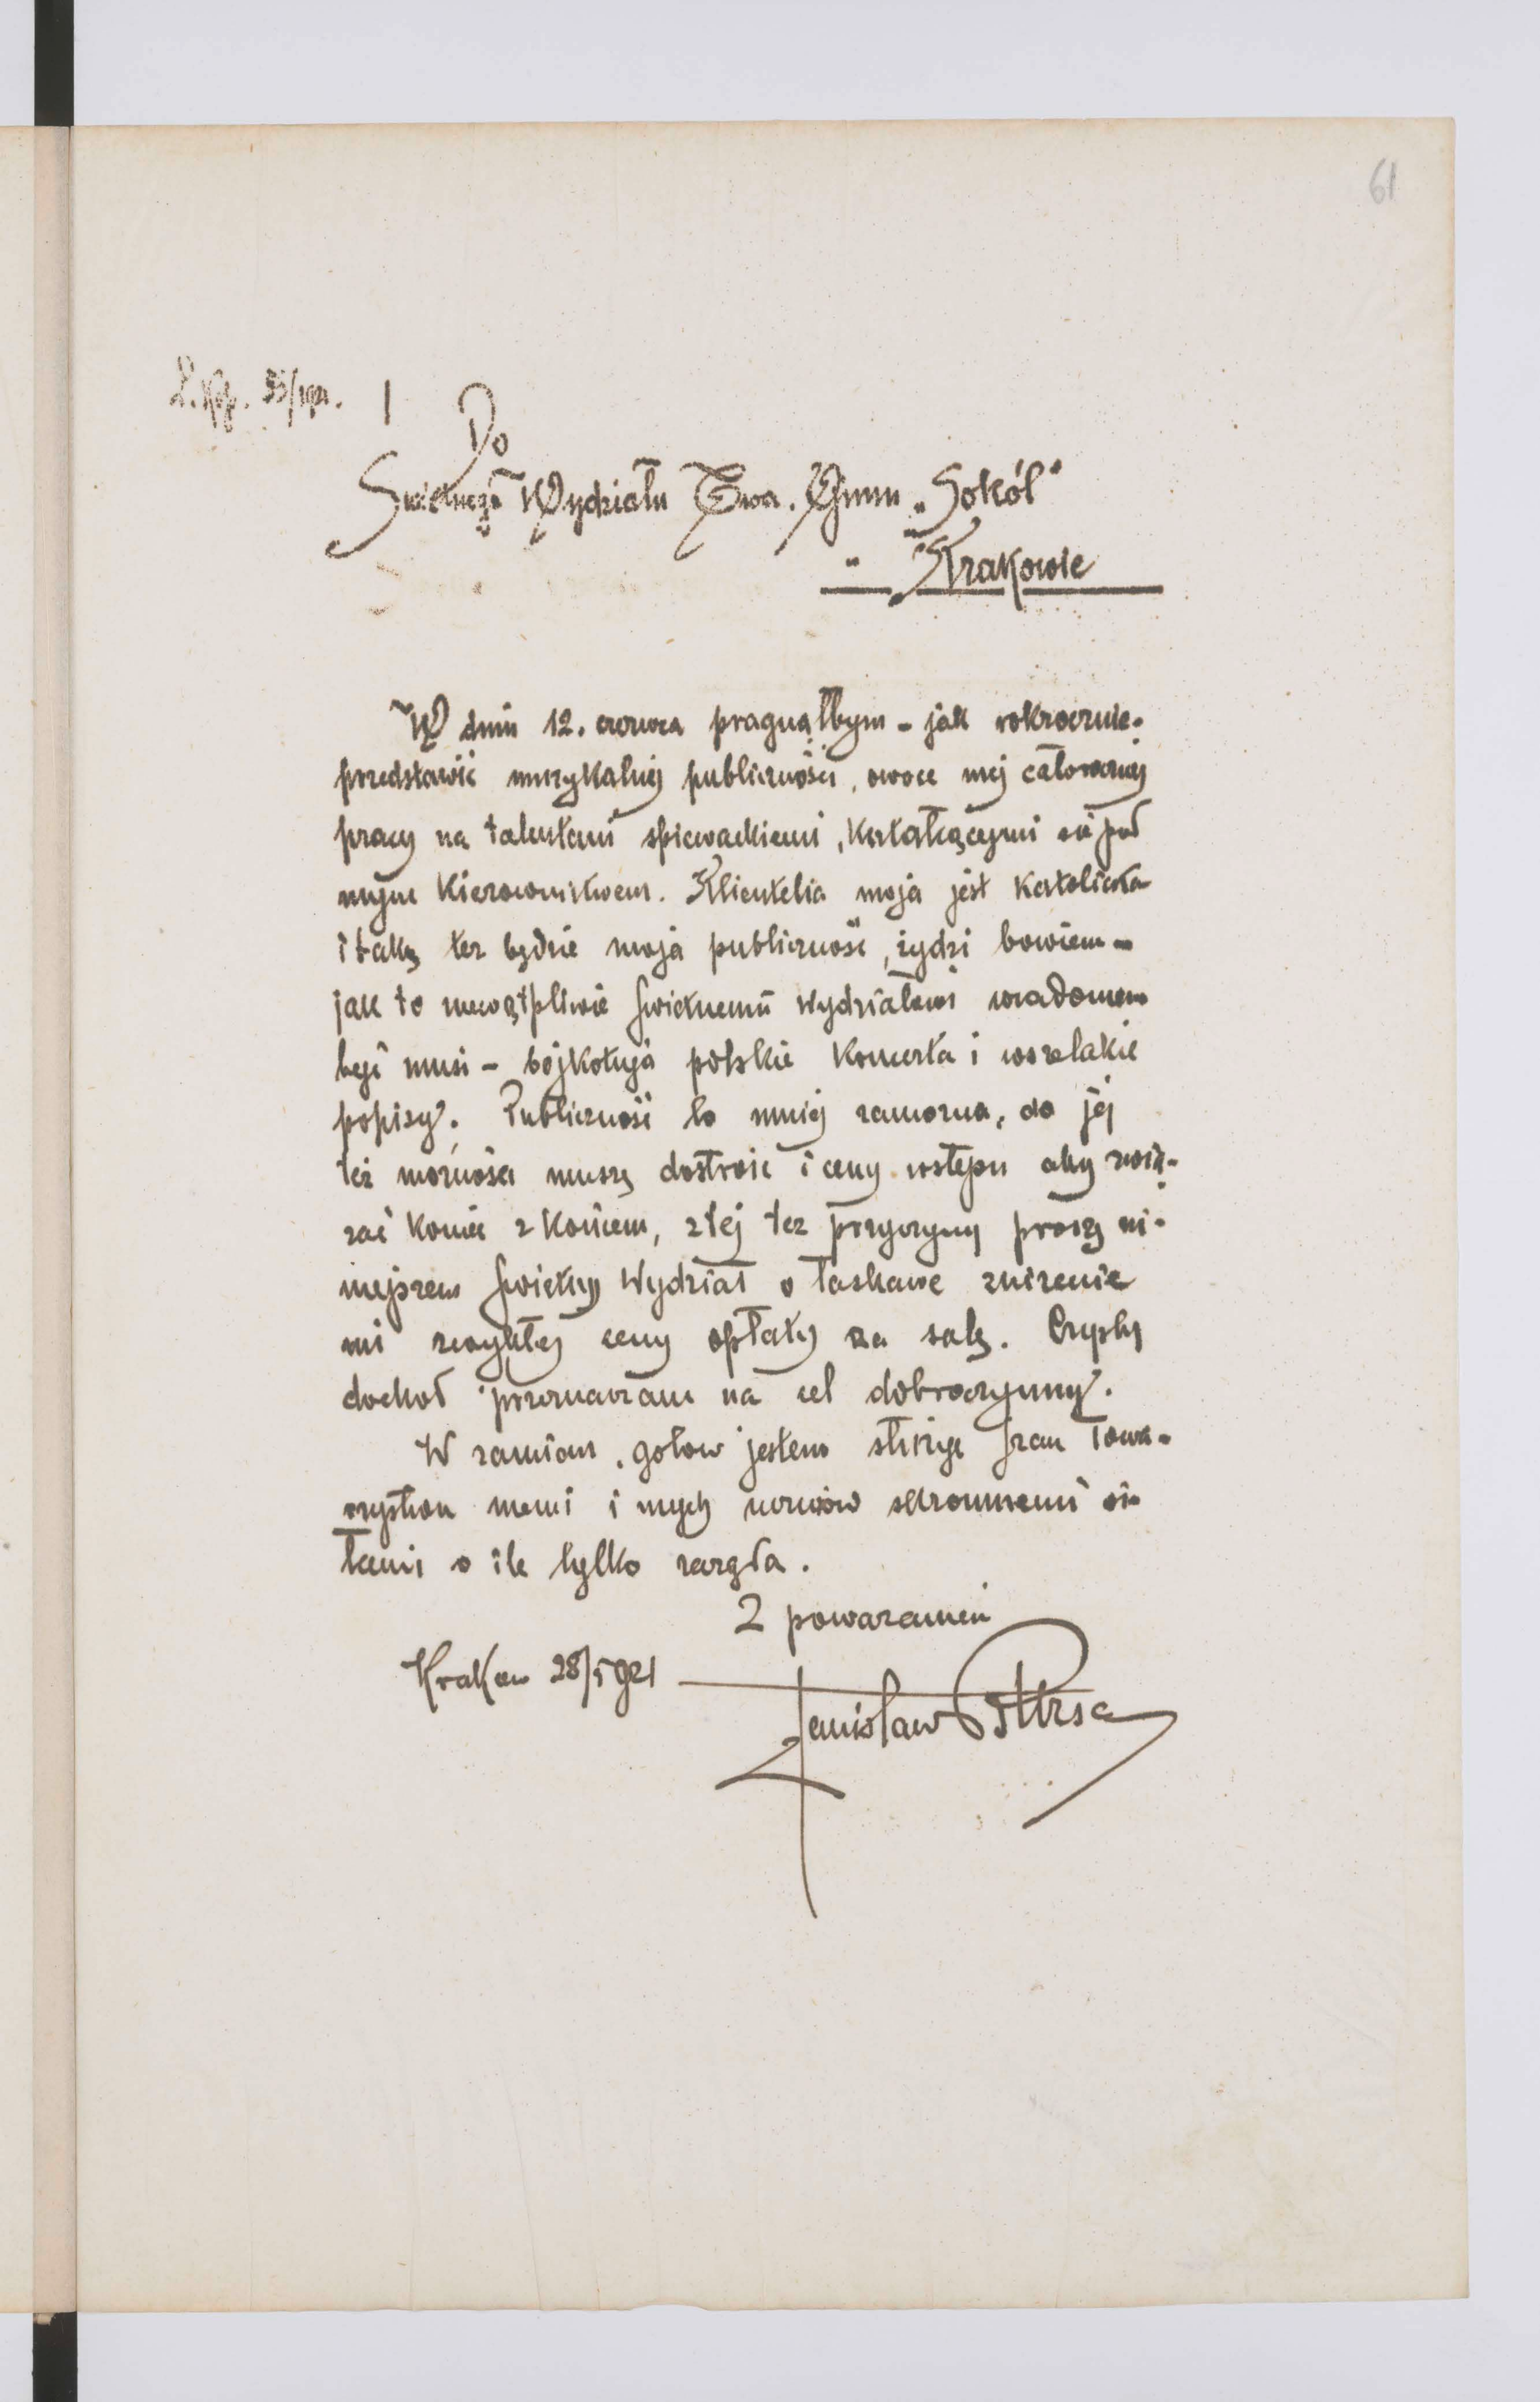 61
Do
Świetnego Wydziału Twa. Gimn „Sokół”
w Krakowie
W dniu 12. czerwca pragnąłbym – jak rokrocznie –
przedstawić muzykalnej publiczności, owoce mej całorocznej
pracy na talentami śpiewackiemi, kształcącymi się pod
mym kierownictwem. Klientelia moja jest katolicka
i taką też będzie moja publiczność, żydzi bowiem –
jak to niewątpliwie świetnemu Wydziałowi wiadomem
być musi – bojkotują polskie koncerta i wszelakie
popisy. Publiczność to mniej zamożna, do jej
też możności muszę dostroić i ceny wstępu aby zwią-
zać koniec z końcem, z tej też przyczyny proszę ni-
niejszem świetny Wydział o łaskawe zniżenie
mi zwykłej ceny opłaty za salę. Czysty
dochód przeznaczam na cel dobroczynny.
W zamian, gotow jestem służyć Towa-
rzystwu memi i mych uczniów skromnemi si-
łami o ile tylko zażąda.
Z poważaniem
Krakow 28/5 921
Stanisław